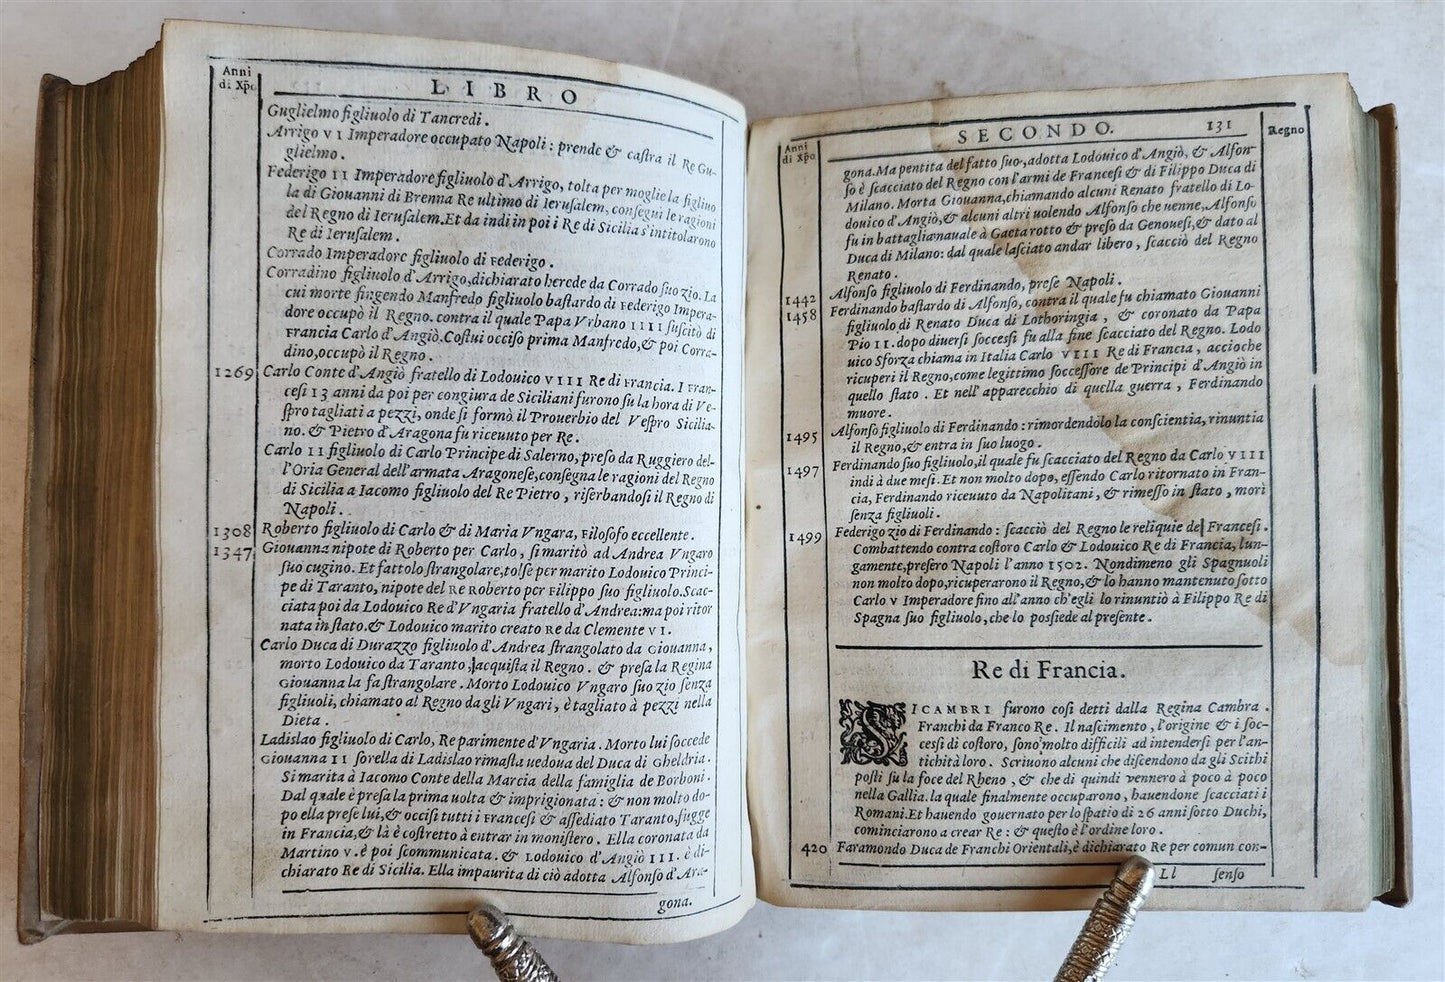 Anni
di Xp̃o
LIBRO
Guglielmo figliuolo di Tancredi.
Arrigo VI Imperadore occupato Napoli: prende & caſtra il Re Gu-
glielmo.
Federigo II Imperadore figliuolo d'Arrigo, tolta per moglie la figliuo
la di Giouanni di Brenna Re ultimo di Ieruſalem, conſegui le ragioni
del Regno di Ieruſalem. Et da indi in poi i Re di Sicilia s'intitolarono
Re di Ieruſalem.
Corrado Imperadore figliuolo di Federigo.
Corradino figliuolo d'Arrigo, dichiarato herede da Corrado ſuo zio. La
cui morte fingendo Manfredo figliuolo baſtardo di Federigo Impera-
dore occupò il Regno. contra il quale Papa Vrbano IIII ſuſcitò di
Francia Carlo d'Angiò. Coſtui occiſo prima Manfredo, & poi Corra-
dino, occupò il Regno.
1269 Carlo Conte d'Angiò fratello di Lodouico VIII Re di Francia. I Fran-
ceſi 13 anni da poi per congiura de Siciliani furono ſu la hora di Ve-
ſpro tagliati a pezzi, onde ſi formò il Prouerbio del Veſpro Sicilia-
no. & Pietro d'Aragona fu riceuuto per Re.
Carlo II figliuolo di Carlo Principe di Salerno, preſo da Ruggiero del-
l'Oria General dell'armata Aragoneſe, conſegna le ragioni del Regno
di Sicilia a Iacomo figliuolo del Re Pietro, riſerbandoſi il Regno di
Napoli.
1308 Roberto figliuolo di Carlo & di Maria Vngara, Filoſofo eccellente.
1347 Giouanna nipote di Roberto per Carlo, ſi maritò ad Andrea Vngaro
ſuo cugino. Et fattolo ſtrangolare, tolſe per marito Lodouico Princi-
pe di Taranto, nipote del Re Roberto per Filippo ſuo figliuolo. Scac-
ciata poi da Lodouico Re d'Vngaria fratello d'Andrea: ma poi ritor
nata in ſtato. & Lodouico marito creato Re da Clemente VI.
Carlo Duca di Durazzo figliuolo d'Andrea ſtrangolato da Giouanna,
morto Lodouico da Taranto, acquiſta il Regno. & preſa la Regina
Giouanna la fa ſtrangolare. Morto Lodouico Vngaro ſuo zio ſenza
figliuoli, chiamato al Regno da gli Vngari, è tagliato à pezzi nella
Dieta.
Ladislao figliuolo di Carlo, Re parimente d'Vngaria. Morto lui ſoccede
Giouanna II ſorella di Ladislao rimaſta uedoua del Duca di Gheldria.
Si marita à Iacomo Conte della Marcia della famiglia de Borboni.
Dal quale è preſa la prima uolta & imprigionata: & non molto do-
po ella preſe lui, & occiſi tutti i Franceſi & aſſediato Taranto, fugge
in Francia, & là è coſtretto à entrar in moniſtero. Ella coronata da
Martino V. è poi ſcommunicata. & Lodouico d'Angiò III. è di-
chiarato Re di Sicilia. Ella impaurita di ciò adotta Alfonſo d'Ara-
gona.
Anni
di Xp̃o
SECONDO. 131
Regno
gona. Ma pentita del fatto ſuo, adotta Lodouico d'Angiò, & Alfon-
ſo è ſcacciato del Regno con l'armi de Franceſi & di Filippo Duca di
Milano. Morta Giouanna, chiamando alcuni Renato fratello di Lo-
douico d'Angiò, & alcuni altri uolendo Alfonſo che uenne, Alfonſo
fu in battaglia nauale à Gaeta rotto & preſo da Genoueſi, & dato al
Duca di Milano: dal quale laſciato andar libero, ſcacciò del Regno
Renato.
1442 Alfonſo figliuolo di Ferdinando, preſe Napoli.
1458 Ferdinando baſtardo di Alfonſo, contra il quale fu chiamato Giouanni
figliuolo di Renato Duca di Lothoringia, & coronato da Papa
Pio II. dopo diuerſi ſocceſſi fu alla fine ſcacciato del Regno. Lodo
uico Sforza chiama in Italia Carlo VIII Re di Francia, accioche
ricuperi il Regno, come legittimo ſocceſſore de Principi d'Angiò in
quello ſtato. Et nell'apparecchio di quella guerra, Ferdinando
muore.
1495 Alfonſo figliuolo di Ferdinando: rimordendolo la conſcientia, rinuntia
il Regno, & entra in ſuo luogo.
1497 Ferdinando ſuo figliuolo, il quale fu ſcacciato del Regno da Carlo VIII
indi à due meſi. Et non molto dopo, eſſendo Carlo ritornato in Fran-
cia, Ferdinando riceuuto da Napolitani, & rimeſſo in ſtato, morì
ſenza figliuoli.
1499 Federigo zio di Ferdinando: ſcacciò del Regno le reliquie de Franceſi.
Combattendo contra coſtoro Carlo & Lodouico Re di Francia, lun-
gamente, preſero Napoli l'anno 1502. Nondimeno gli Spagnuoli
non molto dopo, ricuperarono il Regno, & lo hanno mantenuto ſotto
Carlo V Imperadore fino all'anno ch'egli lo rinuntiò à Filippo Re di
Spagna ſuo figliuolo, che lo poſſiede al preſente.
Re di Francia.
SICAMBRI furono coſi detti dalla Regina Cambra.
Franchi da Franco Re. Il naſcimento, l'origine & i ſoc-
ceſſi di coſtoro, ſono molto difficili ad intenderſi per l'an-
tichità loro. Scriuono alcuni che diſcendono da gli Scithi
poſti ſu la foce del Rheno, & che di quindi vennero à poco à poco
nella Gallia. la quale finalmente occuparono, hauendone ſcacciati i
Romani. Et hauendo gouernato per lo ſpatio di 26 anni ſotto Duchi,
cominciarono a crear Re: & queſto è l'ordine loro.
420 Faramondo Duca de Franchi Orientali, è dichiarato Re per comun con-
Ll ſenſo